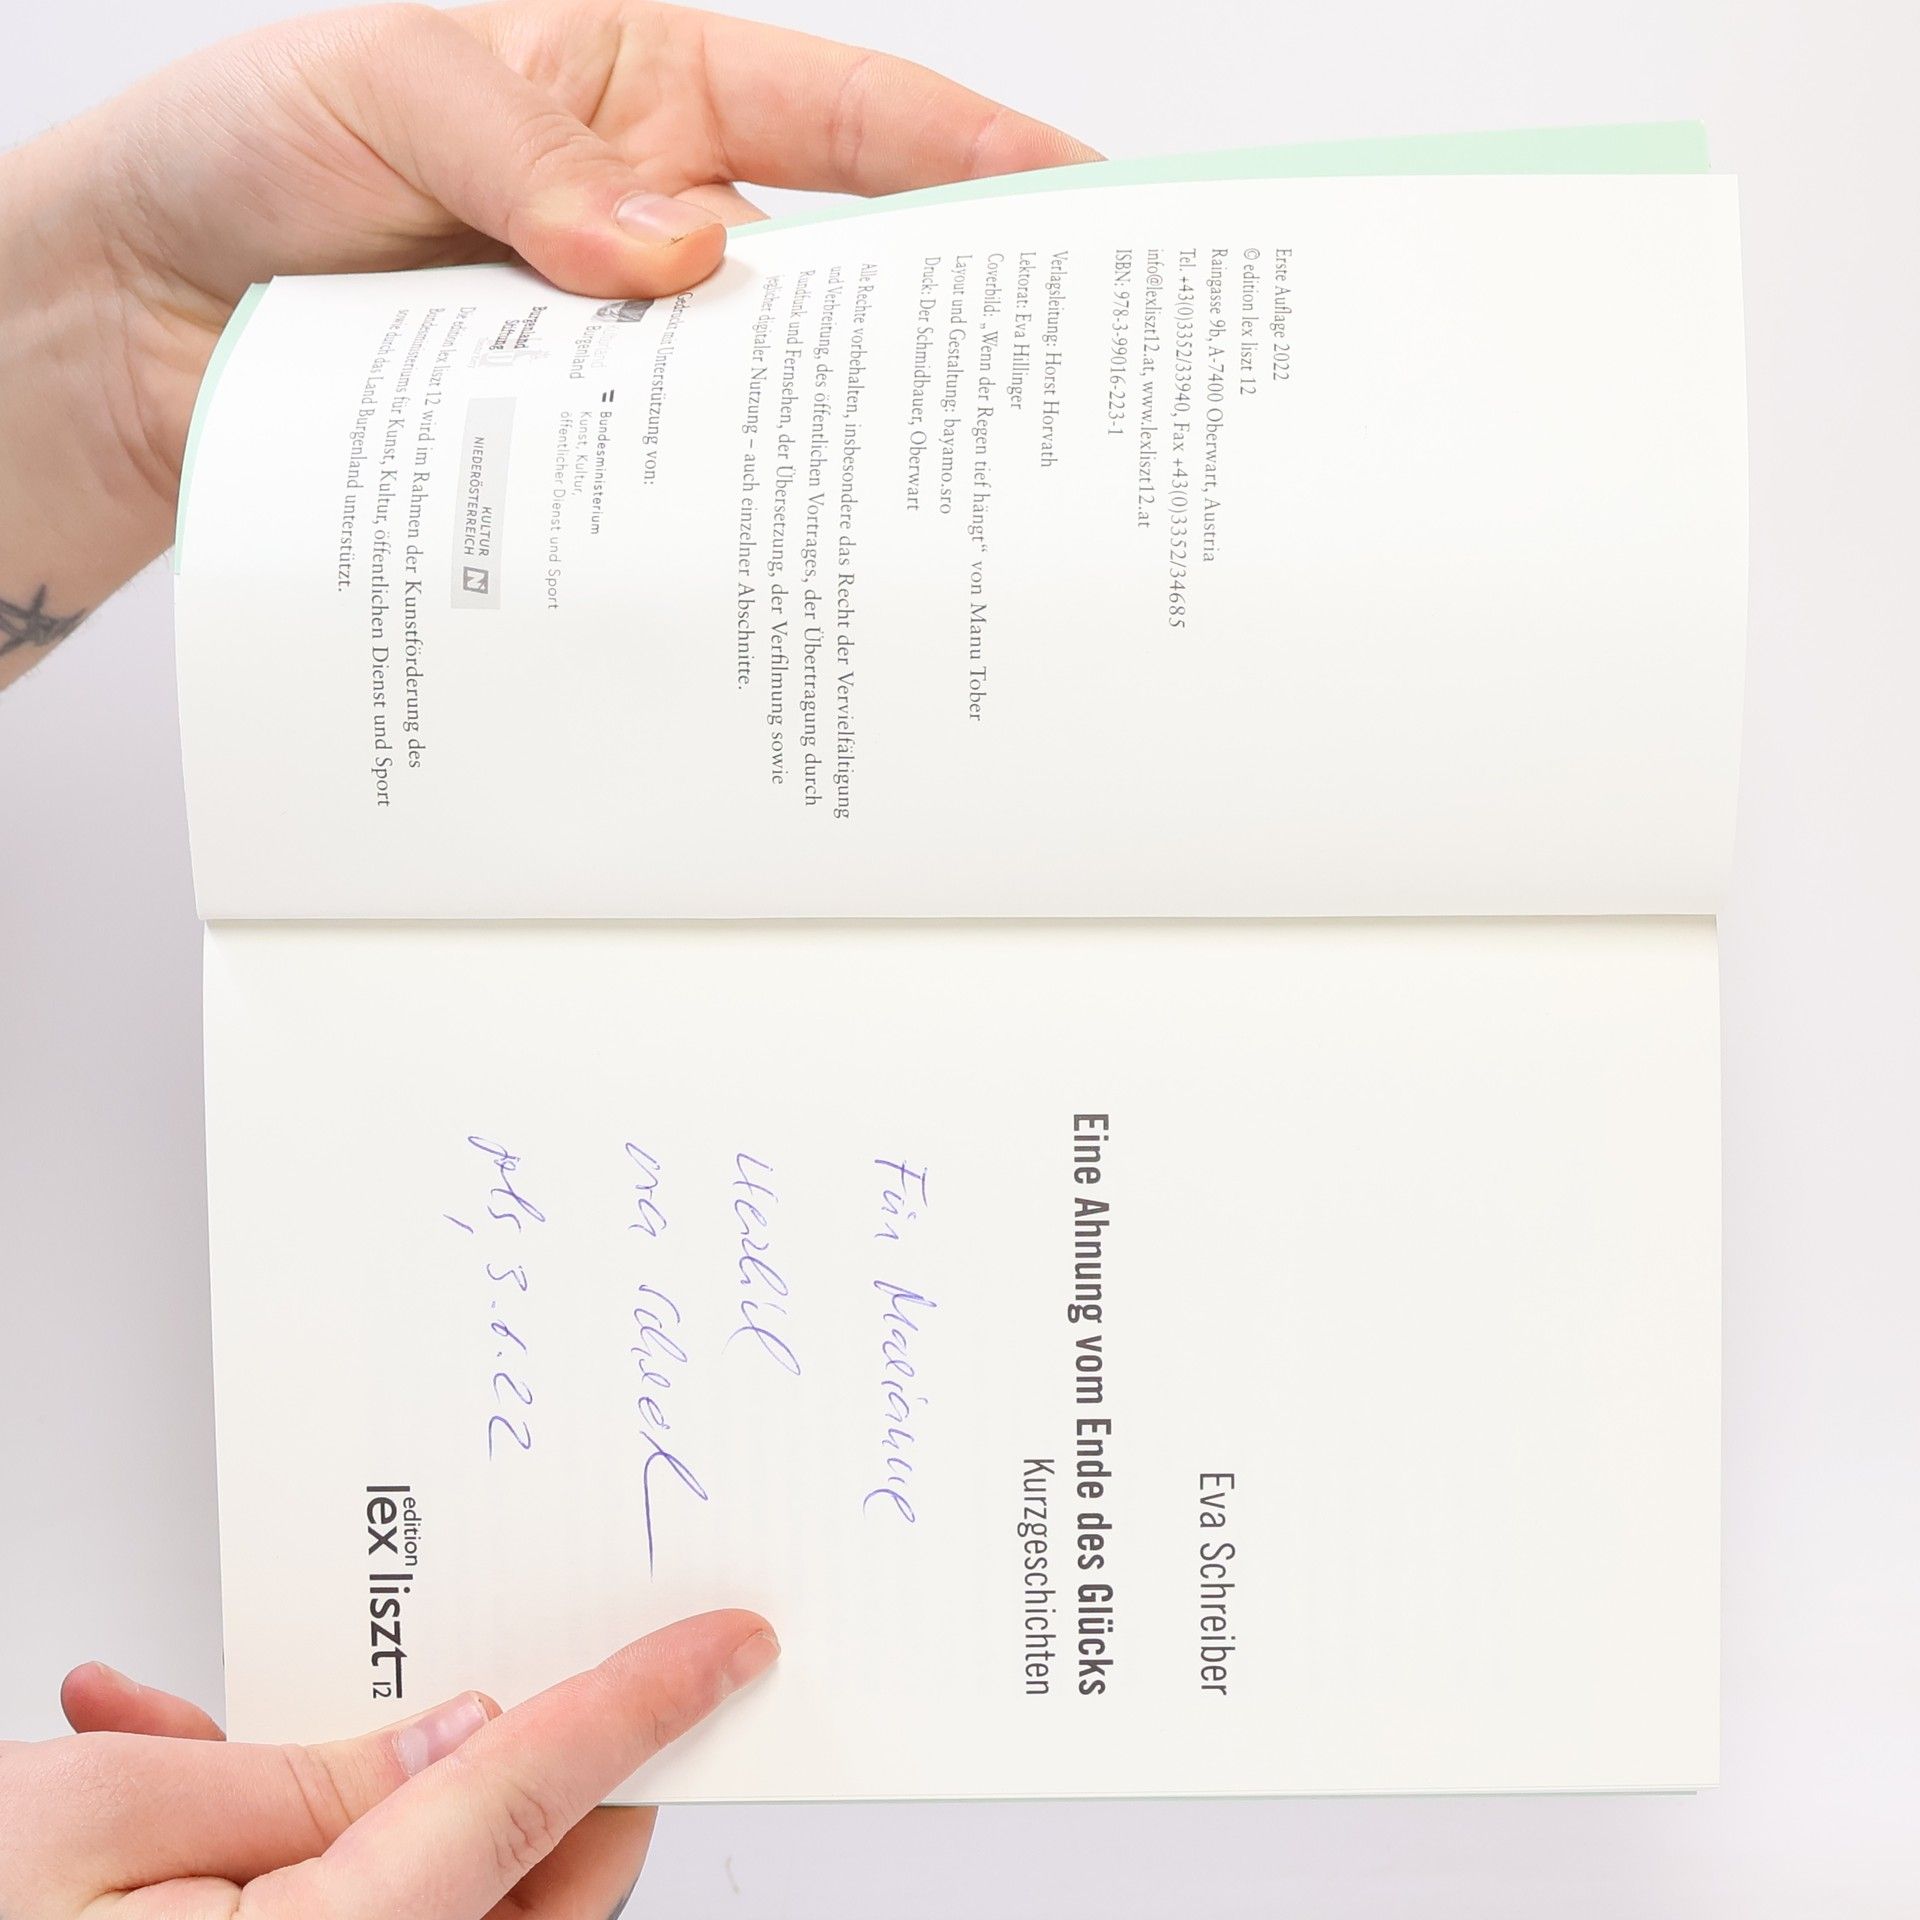 Erste Auflage 2022
© edition lex liszt 12
Raingasse 9b, A-7400 Oberwart, Austria
Tel. +43(0)3352/33940, Fax +43(0)3352/34685
info@lexliszt12.at, www.lexliszt12.at
ISBN: 978-3-99016-223-1
Verlagsleitung: Horst Horvath
Lektorat: Eva Hillinger
Coverbild: „Wenn der Regen tief hängt“ von Manu Tober
Layout und Gestaltung: bayamo.sro
Druck: Der Schmidbauer, Oberwart
Alle Rechte vorbehalten, insbesondere das Recht der Vervielfältigung
und Verbreitung, des öffentlichen Vortrages, der Übertragung durch
Rundfunk und Fernsehen, der Übersetzung, der Verfilmung sowie
jeglicher digitaler Nutzung – auch einzelner Abschnitte.
Gedruckt mit Unterstützung von:
Burgenland
Bundesministerium
Kunst, Kultur,
öffentlicher Dienst und Sport
Burgenland
Stiftung
KULTUR
NIEDERÖSTERREICH
Die edition lex liszt 12 wird im Rahmen der Kunstförderung des
Bundesministeriums für Kunst, Kultur, öffentlichen Dienst und Sport
sowie durch das Land Burgenland unterstützt.
Eva Schreiber
Eine Ahnung vom Ende des Glücks
Kurzgeschichten
Für Marianne
3.6.22
edition
lex liszt 12